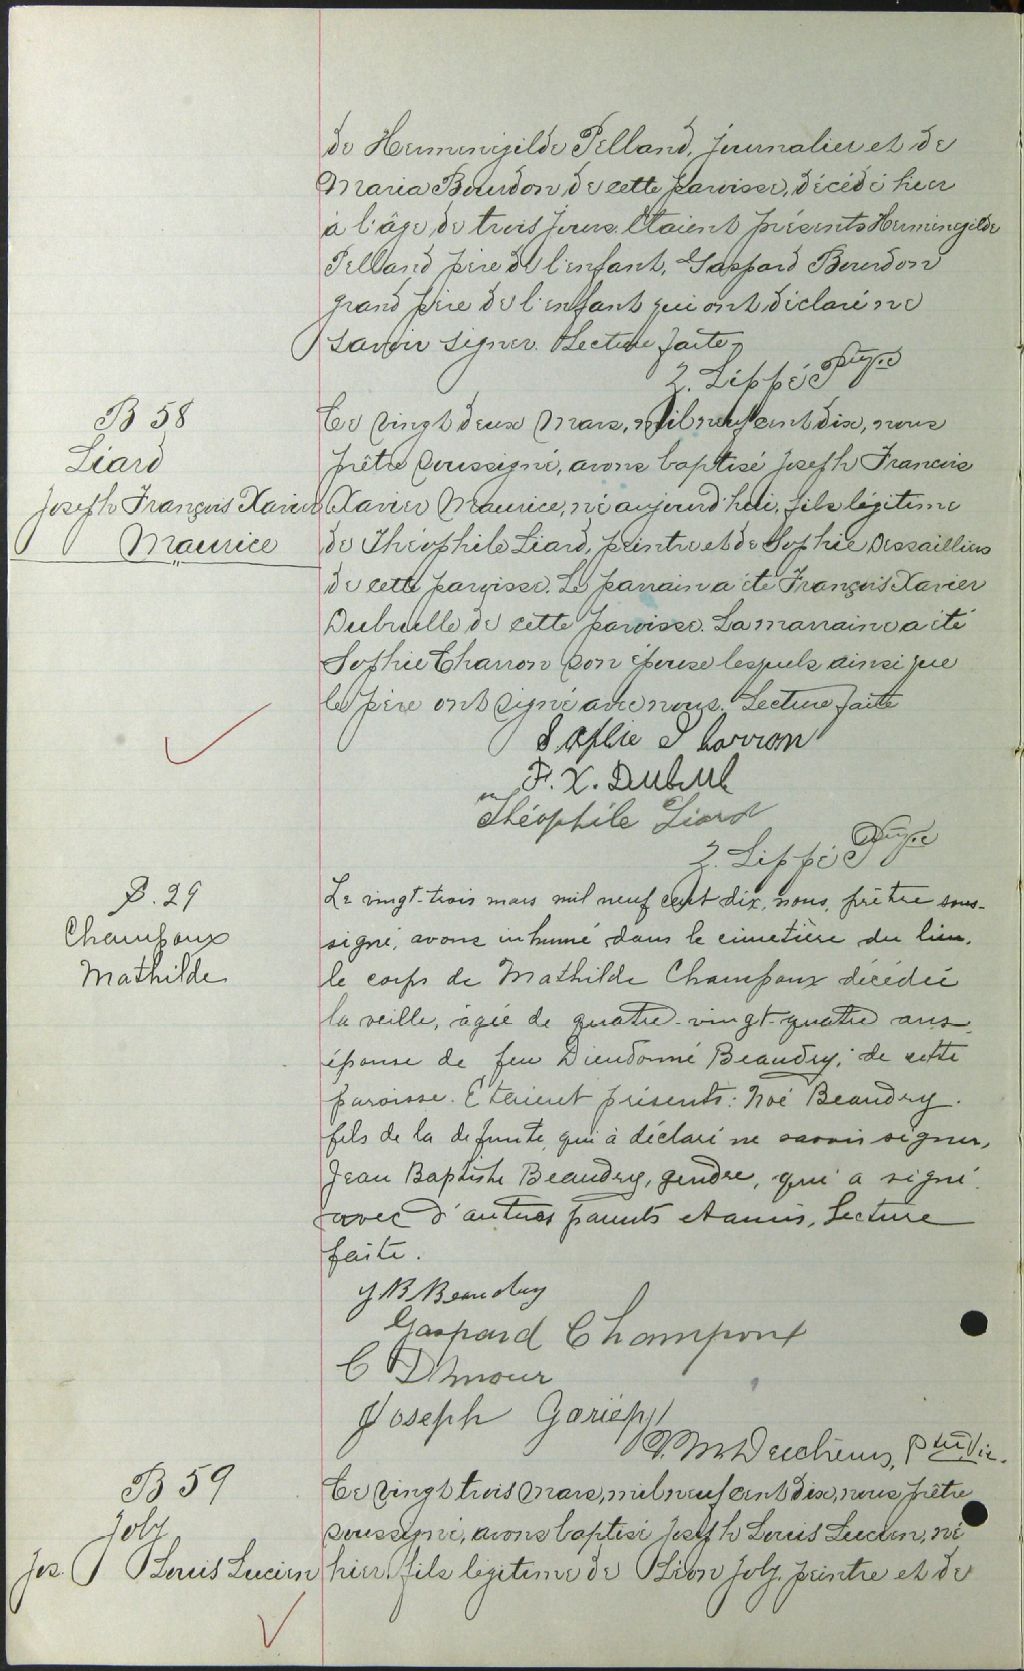 de Hermenegilde Pelland, journalier et de
Maria Bourdon de cette paroisse, décédé hier
à l'âge de trois jours. Etaient présents Hermenegilde
Pelland père de l'enfant, Gaspard Bourdon
grand père de l'enfant qui ont déclaré ne
savoir signer. Lecture faite
Z. Lippé Ptre
B 58
Liard
Joseph François Xavier
Maurice
Ce vingt deux Mars, mil neuf cent dix, nous
prêtre soussigné, avons baptisé Joseph Francois
Xavier Maurice, né aujourd'hui, fils légitime
de Théophile Liard, peintre et de Sophie Dessailliers
de cette paroisse. Le parrain a été François Xavier
Dubrulle de cette paroisse. La marraine a été
Sophie Charron son épouse lesquels ainsi que
le père ont signé avec nous. Lecture faite
Sophie Charron
F. X. Dubrule
Théophile Liard
Z. Lippé Ptre
S. 29
Champoux
Mathilde
Le vingt-trois mars mil neuf cent dix, nous, prêtre sous-
signé, avons inhumé dans le cimetière du lieu,
le corps de Mathilde Champoux décédée
la veille, âgée de quatre-vingt-quatre ans
épouse de feu Dieudonné Beaudry, de cette
paroisse. Etaient présents: Noé Beaudry
fils de la defunte, qui à déclaré ne savoir signer,
Jean Baptiste Beaudry, gendre, qui a signé
avec d'autres parents et amis, Lecture
faite.
J B Beaudry
Gaspard Champoux
C Damour
Joseph Gariépy
Deschênes, Ptre Vic.
B 59
Joly
Jos. Louis Lucien
Ce vingt trois Mars, mil neuf cent dix, nous prêtre
soussigné, avons baptisé Joseph Louis Lucien, né
hier, fils légitime de Léon Joly, peintre et de